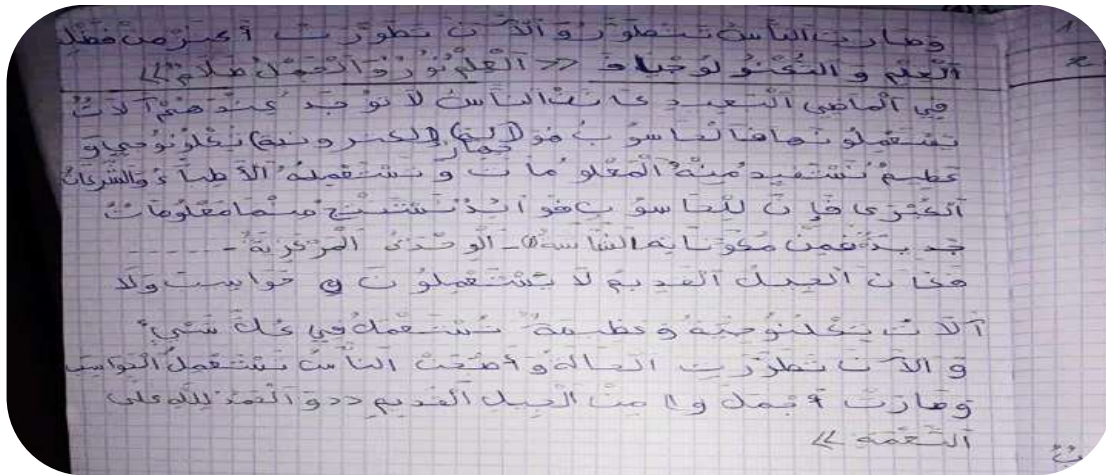 وَصارَتِ النَّاسُ تَتَطَوَّرُ وَالآنَ تَطَوَّرَتْ أكثر من فضل
اَلْعِلْمِ وَ التِّكْنُولُوجْيَا << اَلْعِلْمُ نُورٌ وَ اَلْجَهْلُ ضلامٌ >>
فِي اَلْمَاضِي اَلْبَعِيدِ كَانَتْ النَّاسُ لَا تُوجَدُ عِنْدَهُمْ آلَاتٌ
تَسْتَعْمِلُونَهَا فَالْحَاسُوبُ هُوَ (آلة) جهاز (إلكترونية) تكلونوجي وَ
عظيمٌ نَسْتَفِيدُ مِنْهُ اَلْمَعْلُومَاتِ وَ تَسْتَعْمِلُهُ اَلْأَطِبَاءُ وَالشَّرِكَاتُ
اَلْكُبْرَى فَإِنَّ لِلْحَاسُوبِ فَوَائِدُ نَسْتَنْتِجُ مِنْهَا مَعْلُومَاتٌ
جَدِيدَةٌ فَمِنْ مُكَوِّنَاتِهِ الشَّاشَةُ - اَلْوِحْدَةُ اَلْمَرْكَزِيَّةُ - ......
فَكَانَ اَلْجِيلُ اَلْقَدِيمُ لَا يَسْتَعْمِلُونَ حَوَاسِبَ وَلَا
آلَاتٌ تِكْلنُوجِيَّةٌ وَ عَظِيمَةٌ تُسْتَعْمَلُ فِي كُلِّ شَيْءٍ
وَ الآنَ تَطَوَّرَتِ اَلْحَالَةُ وَ أَصْبَحَتْ النَّاسُ تَسْتَعْمِلُ اَلْحَوَاسِبَ
وَصَارَتْ أَجْمَلَ مِنَ اَلْجِيلِ اَلْقَدِيمِ << وَ اَلْحَمْدُ لِلَّهِ عَلَى
اَلنِّعْمَةِ >>